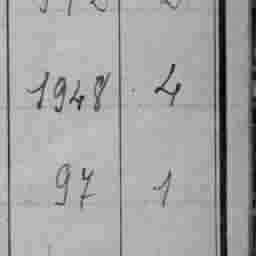 1948 4
97 1